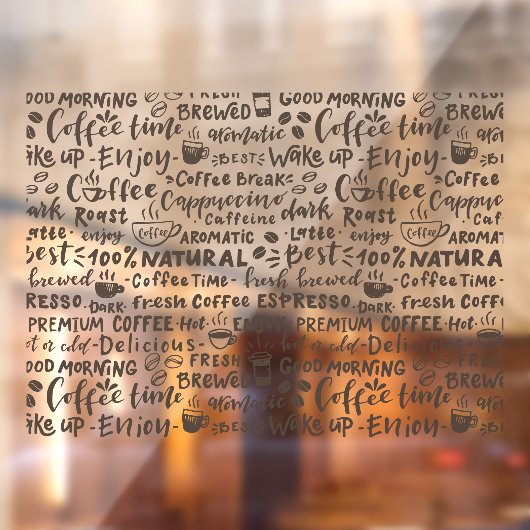 GOOD MORNING FRESH BREWED GOOD MORNING BREWED
Coffee time aromatic Coffee time
Wake up - Enjoy - - BEST - Wake up - Enjoy -
Coffee Coffee Break Coffee Coffee
Cappuccino
dark Roast Caffeine dark Roast
Latte enjoy Coffee AROMATIC Latte enjoy Coffee AROMATIC
Best 100% NATURAL Best 100% NATURA
brewed - Coffee Time - fresh brewed - Coffee Time -
ESPRESSO. DARK fresh Coffee ESPRESSO. DARK fresh Coffee
PREMIUM COFFEE · Hot · ENJOY PREMIUM COFFEE · Hot ·
hot or cold - Delicious - hot or cold - Delicious -
GOOD MORNING FRESH BREWED GOOD MORNING FRESH BREWED
Coffee time aromatic Coffee time
Wake up - Enjoy - BEST Wake up - Enjoy -